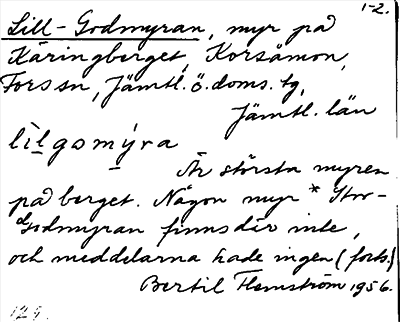 1-2.
Lill-Godmyran, myr på
Käringberget, Korsåmon,
Fors sn, Jämtl. ö. doms. tg,
Jämtl. län
lìlgosmýra
Är största myren
på berget. Någon myr * Stor-
Godmyran finns där inte,
och meddelarna hade ingen (forts.)
Bertil Flemström 1956.